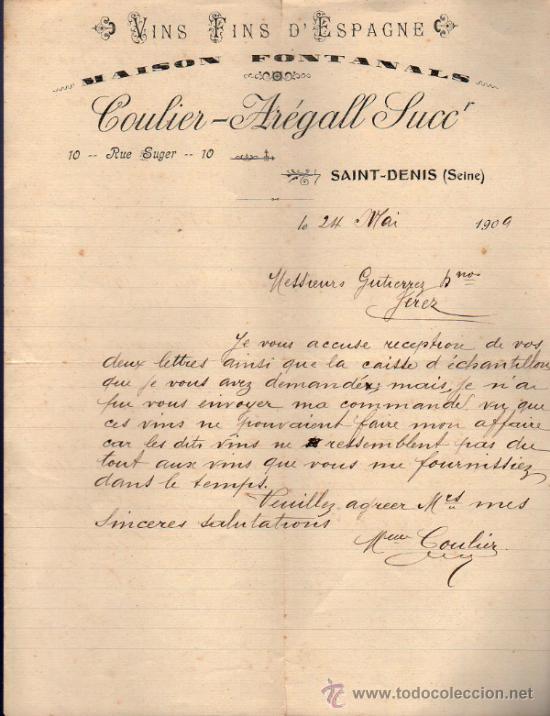 VINS FINS D'ESPAGNE
MAISON FONTANALS
Coulier-Arégall Succr
10 -- Rue Suger -- 10
SAINT-DENIS (Seine)
le 24 Mai 1909
Messieurs Gutierrez hnos
Jérez
Je vous accuse reception de vos
deux lettres ainsi que la caisse d'échantillon
que je vous avez demandez mais, je n'ai
pu vous envoyer ma commande vu que
ces vins ne pouvaient faire mon affaire
car les dits vins ne ressemblent pas du
tout aux vins que vous me fournissiez
dans le temps.
Veuillez agreer Mrs mes
sinceres salutations
Mme Coulier
todocoleccion
www.todocoleccion.net